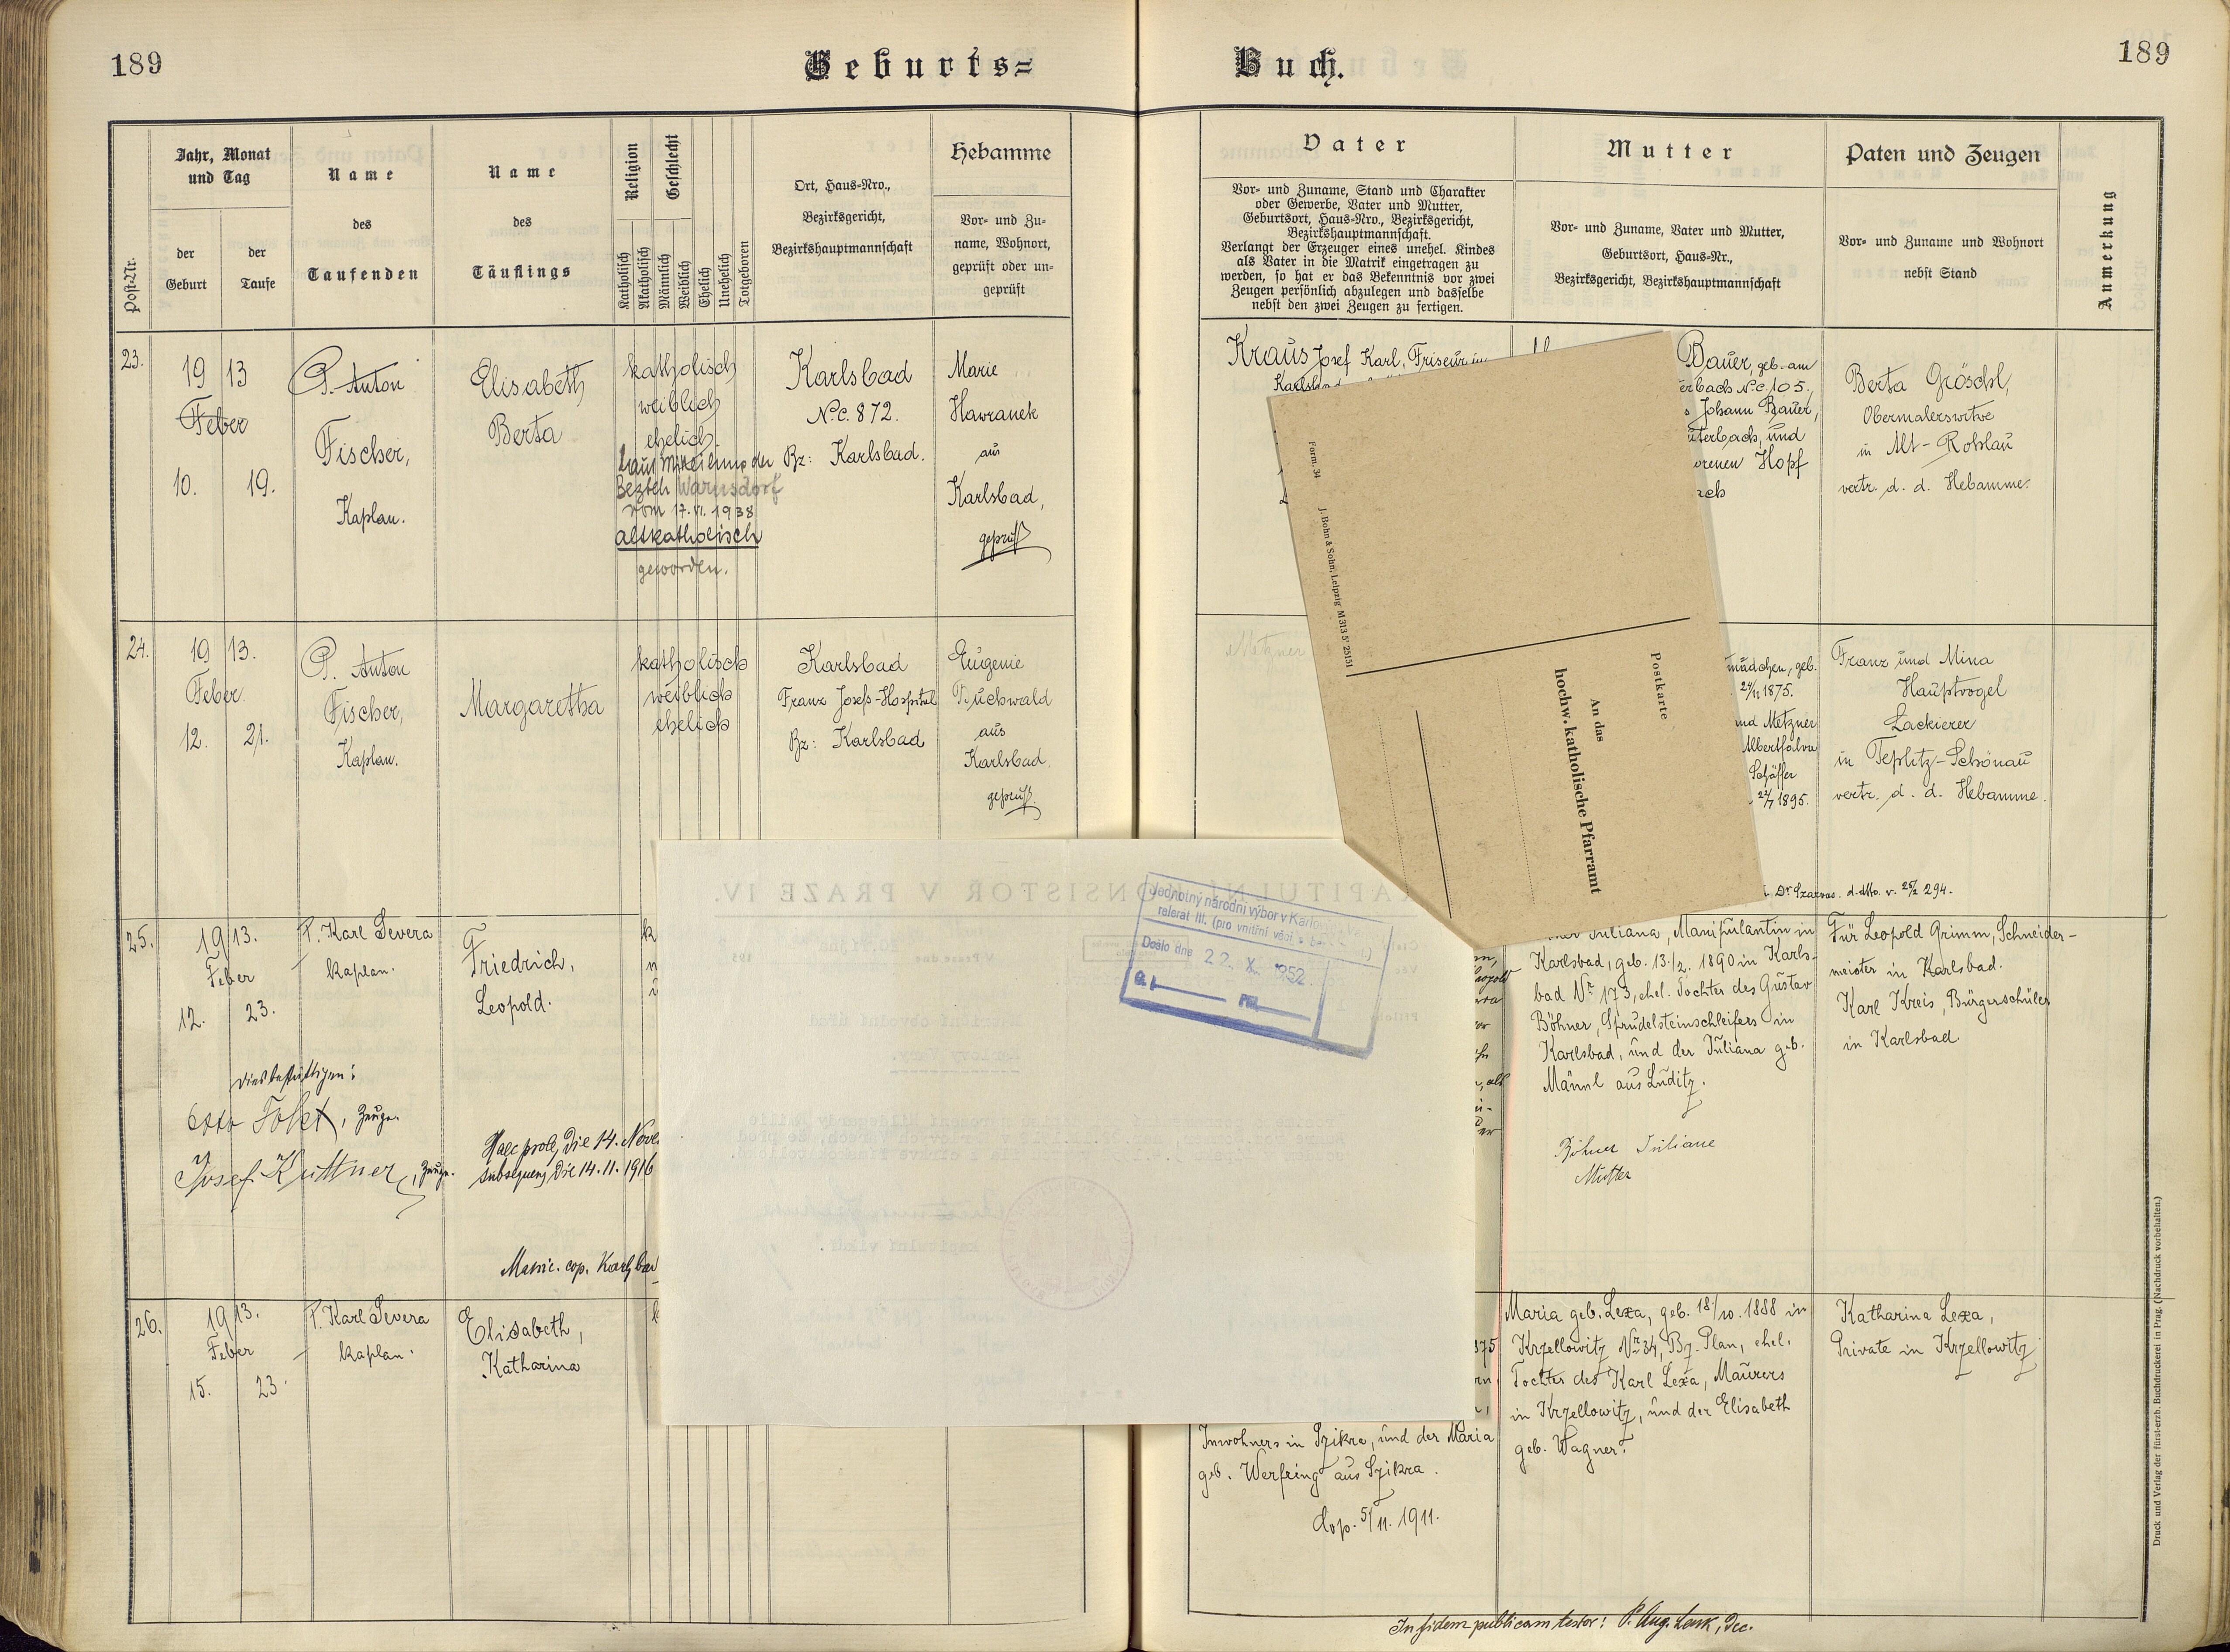 189
Geburts=
Buch.
189
Post-Nr.
Jahr, Monat
und Tag
der
Geburt
der
Taufe
Name
des
Taufenden
Name
des
Täuflings
Religion
Geschlecht
Katholisch
Akatholisch
Männlich
Weiblich
Ehelich
Unehelich
Totgeboren
Ort, Haus=Nro.,
Bezirksgericht,
Bezirkshauptmannschaft
Hebamme
Vor= und Zu=
name, Wohnort,
geprüft oder un=
geprüft
Vater
Vor= und Zuname, Stand und Charakter
oder Gewerbe, Vater und Mutter,
Geburtsort, Haus=Nro., Bezirksgericht,
Bezirkshauptmannschaft.
Verlangt der Erzeuger eines unehel. Kindes
als Vater in die Matrik eingetragen zu
werden, so hat er das Bekenntnis vor zwei
Zeugen persönlich abzulegen und dasselbe
nebst den zwei Zeugen zu fertigen.
Mutter
Vor= und Zuname, Vater und Mutter,
Geburtsort, Haus=Nr.,
Bezirksgericht, Bezirkshauptmannschaft
Paten und Zeugen
Vor= und Zuname und Wohnort
nebst Stand
Anmerkung
23.
19 13
Feber
10. 19.
P. Anton
Fischer,
Kaplan.
Elisabeth
Berta
katholisch
weiblich
ehelich.
Laut Mitteilung der
Bezbeh Warnsdorf
vom 17.VI.1938
altkatholisch
geworden.
Karlsbad
N.c. 872.
Bz: Karlsbad.
Marie
Hawranek
aus
Karlsbad,
geprüft
Kraus Josef Karl, Friseur in
Karlsbad
Bauer, geb. am
erbach N.c. 105,
Johann Bauer,
uterbach, und
orenen Hopf
ach
Berta Gröschl,
Obermalerswitwe
in Alt-Rohlau
vertr. d. d. Hebamme.
24.
19 13.
Feber.
12. 21.
P. Anton
Fischer,
Kaplan.
Margaretha
katholisch
weiblich
ehelich
Karlsbad
Franz Josefs-Hospital
Bz: Karlsbad
Eugenie
Buchwald
aus
Karlsbad.
geprüft.
Metzner
mädchen, geb.
24/11 1875.
und Metzner
Albertfalva
Schäffer
22/7 1895.
Franz und Mina
Hauptvogel
Lackierer
in Teplitz-Schönau
vertr. d. d. Hebamme.
Form. 34 J. Bohn & Sohn, Leipzig M 313 5' 25151
Postkarte
An das
hochw. katholische Pfarramt
25.
19 13.
Feber
12. 23.
P. Karl Severa
Kaplan.
Friedrich,
Leopold.
dies bestättigen:
Otto , Zeuge.
Josef Kuttner, Zeuge.
Haec prolq die 14. Nove
subsequenq die 14.11.1916
Matric. cop. Karlsbad
Jednotný národní výbor v Karlov
referát III. (pro vnitřní věci a bezpečnost)
Došlo dne 22. X. 1952
Čj.
Juliana, Manipulantin in
Karlsbad, geb. 13./2. 1890 in Karls-
bad Nr 173, ehel. Tochter des Gustav
Böhner, Sprudelsteinschleifers in
Karlsbad, und der Juliana geb.
Männl aus Luditz.
Böhner Juliane
Mutter
Für Leopold Grimm, Schneider-
meister in Karlsbad.
Karl Kreis, Bürgerschüler
in Karlsbad
26.
19 13.
Feber
15. 23.
P. Karl Severa
Kaplan.
Elisabeth,
Katharina
Inwohners in Szikra, und der Maria
geb. Werfring aus Szikra.
cop. 5/11. 1911.
Maria geb. Lexa, geb. 18./10. 1888 in
Krzellowitz Nr 34, Bz. Plan, ehel.
Tochter des Karl Lexa, Maurers
in Krzellowitz, und der Elisabeth
geb. Wagner.
Katharina Lexa,
Private in Krzellowitz
In fidem publicam testor: P. Aug. Lenk, Dec.
Druck und Verlag der fürsterzb. Buchdruckerei in Prag. (Nachdruck vorbehalten.)